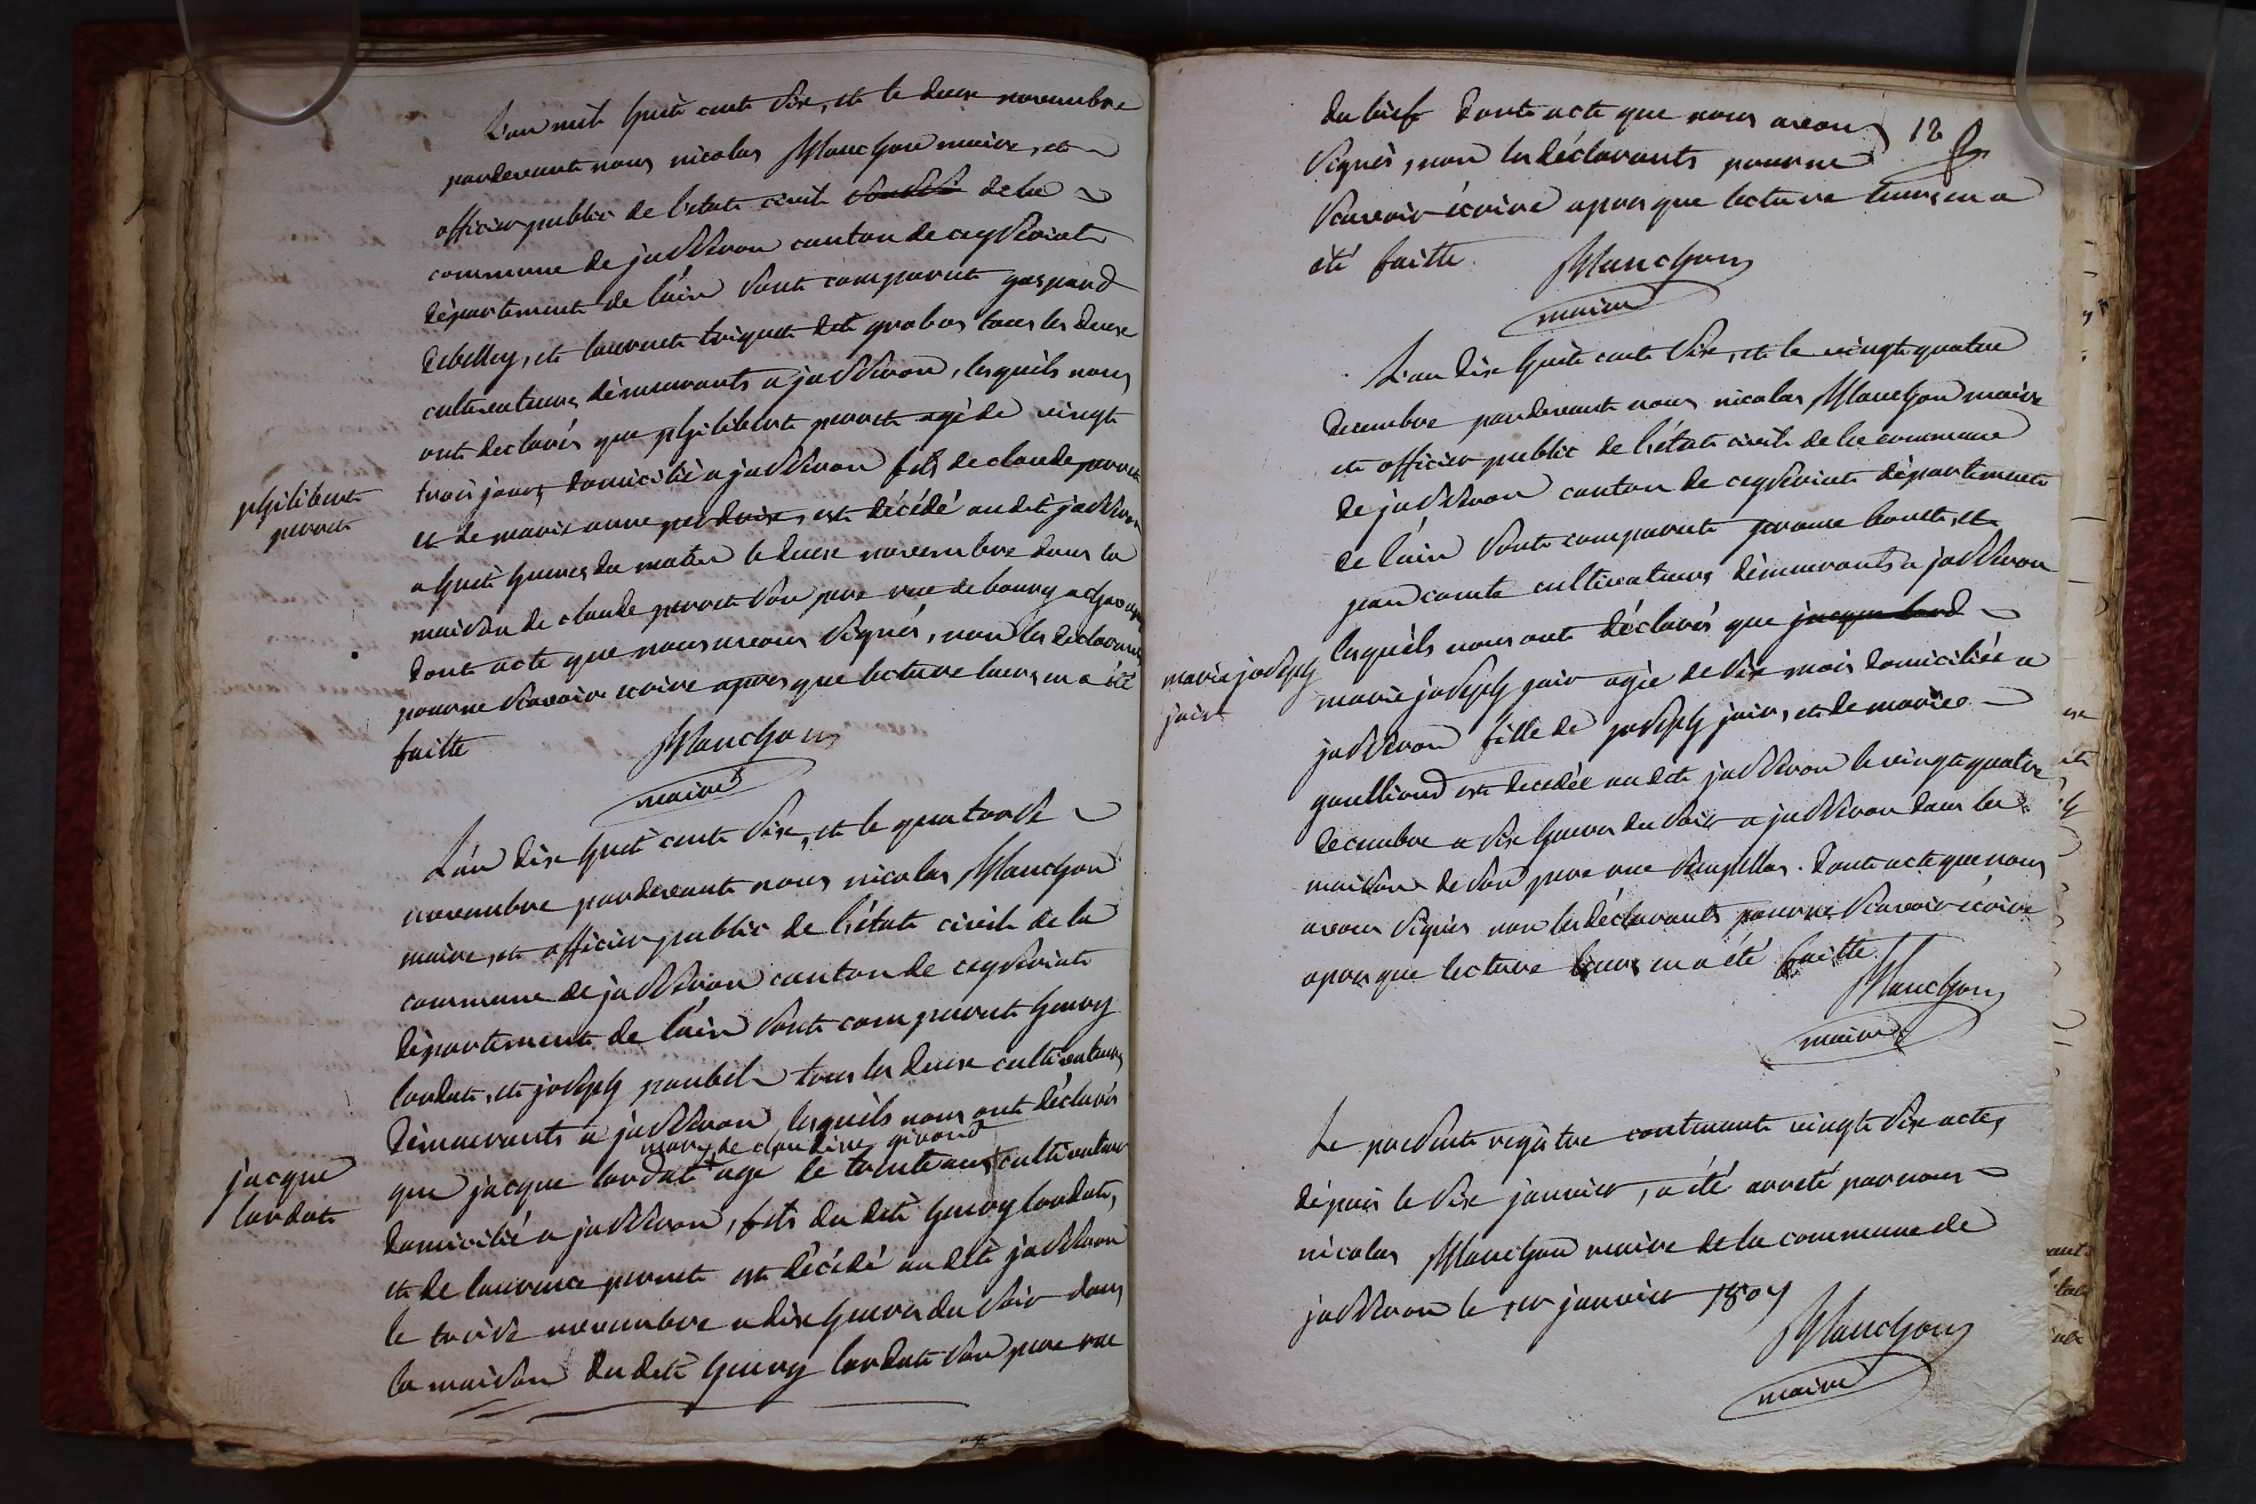 L'an mil huit cent six, et le deux novembre
pardevant nous nicolas Manchon maire, et
officier public de l'état civil de la
commune de jasseron canton de ceyseriat
département de l'ain sont comparut gaspard
debelley, et laurent triquet dit grobas tous les deux
cultivateurs démeurants a jasseron, lesquils nous
ont declarés que philibert perret agé de vingt
trois jours domicilié a jasseron fils de claude perret
et de marie anne perdrix, est décédé audit jasseron
a huit heures du matin le deux novembre dans la
maison de claude perret son pere rue de bourg
dont acte que nous avons signés, non les declarants
pour ne scavoir écrire apres que lecture leurs en a été
faitte
Manchon
maire
philibert
perret
L'an dix huit cent six, et le quatorse
novembre pardevant nous nicolas Manchon
maire, et officier public de l'état civil de la
commune de jasseron canton de ceyseriat
département de l'ain sont comparut henry
lardat, et joseph paubel tous les deux cultivateurs
démeurants a jasseron lesquils nous ont déclarés
mary de claudine girond
que jacque lardat agé de trente ans cultivateur
domicilié a jasseron, fils du dit henry lardat,
et de laurence perret est décédé au dit jasseron
le treise novembre a dix heures du soir dans
la maison du dit henry lardat son pere rue
jacque
lardat
12
du bief dont acte que nous avons
signés, non les déclarants pour ne
scavoir écrire apres que lecture leurs en a
été faitte.
Manchon
maire
L'an dix huit cent six, et le vingt quatre
decembre pardevant nous nicolas Manchon maire
et officier public de l'état civil de la commune
de jasseron canton de ceyseriat département
de l'ain sont comparut
jean comte cultivateurs démeurants a jasseron
lesquils nous ont déclarés que jacque lard
marie joseph jair agée de six mois domiciliée a
jasseron fille de joseph jair, et de marie
goulliond est decedée au dit jasseron le vingt quatre
decembre a six heures du soir a jasseron dans la
maison de son pere rue. dont acte que nous
avons signés non les déclarants pour ne scavoir écrire
apres que lecture leurs en a été faitte
Manchon
maire
marie joseph
jair
Le present registre contenant vingt six actes
dépuis le six janvier, a été arreté par nous
nicolas Manchon maire de la commune de
jasseron le 1er janvier 1807
Manchon
maire